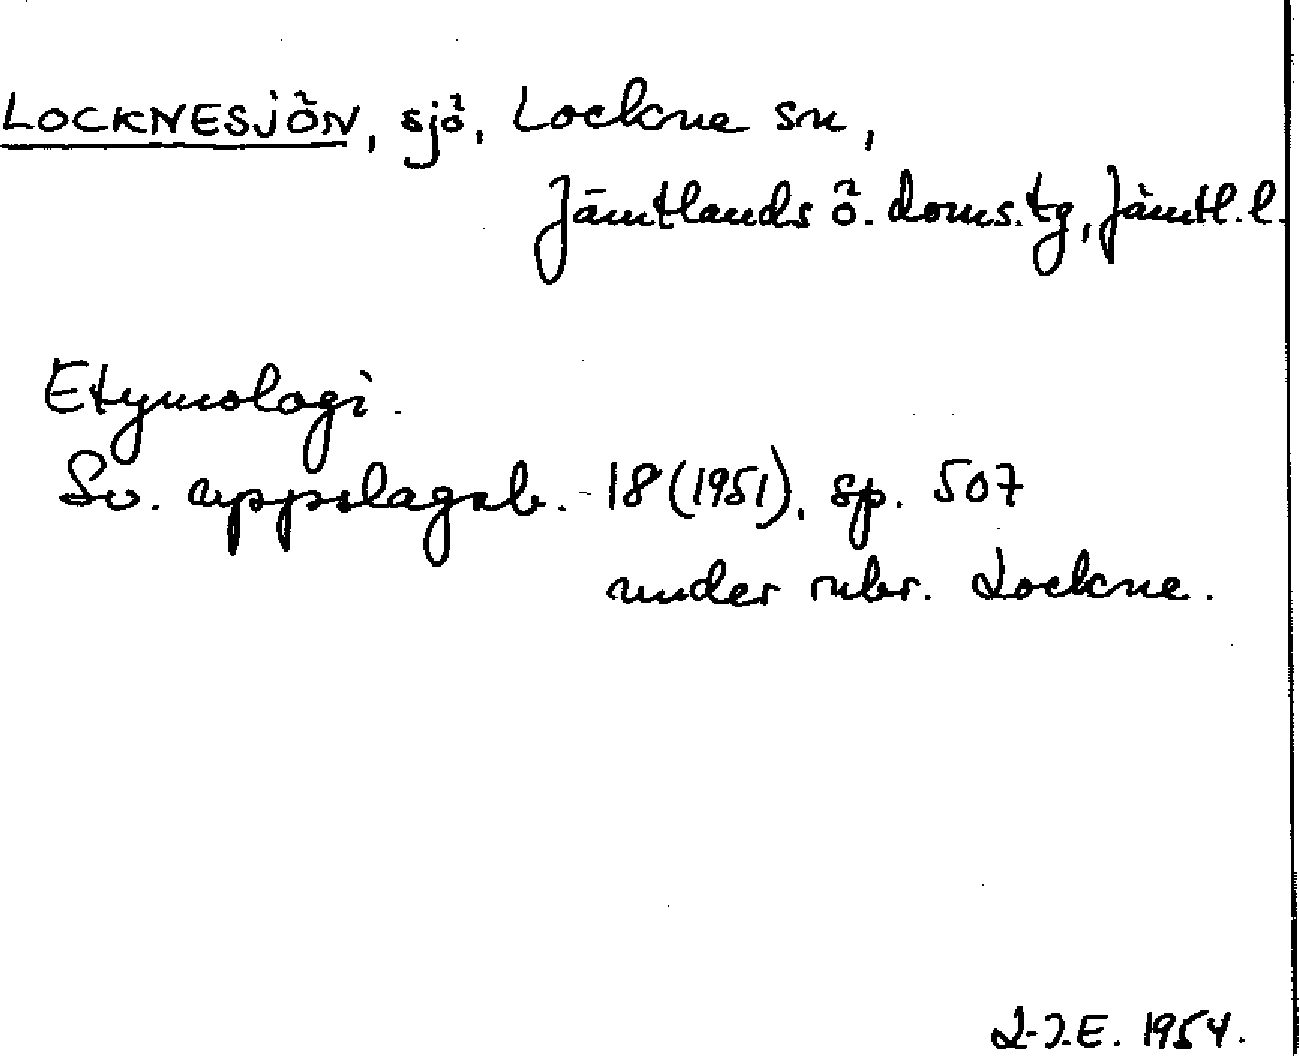 LOCKNESJÖN, sjö, Lockne sn,
Jämtlands ö. doms.tg, Jämtl. l.
Etymologi.
Sv. uppslagsb. 18 (1951), sp. 507
under rubr. Lockne.
L-I.E. 1954.